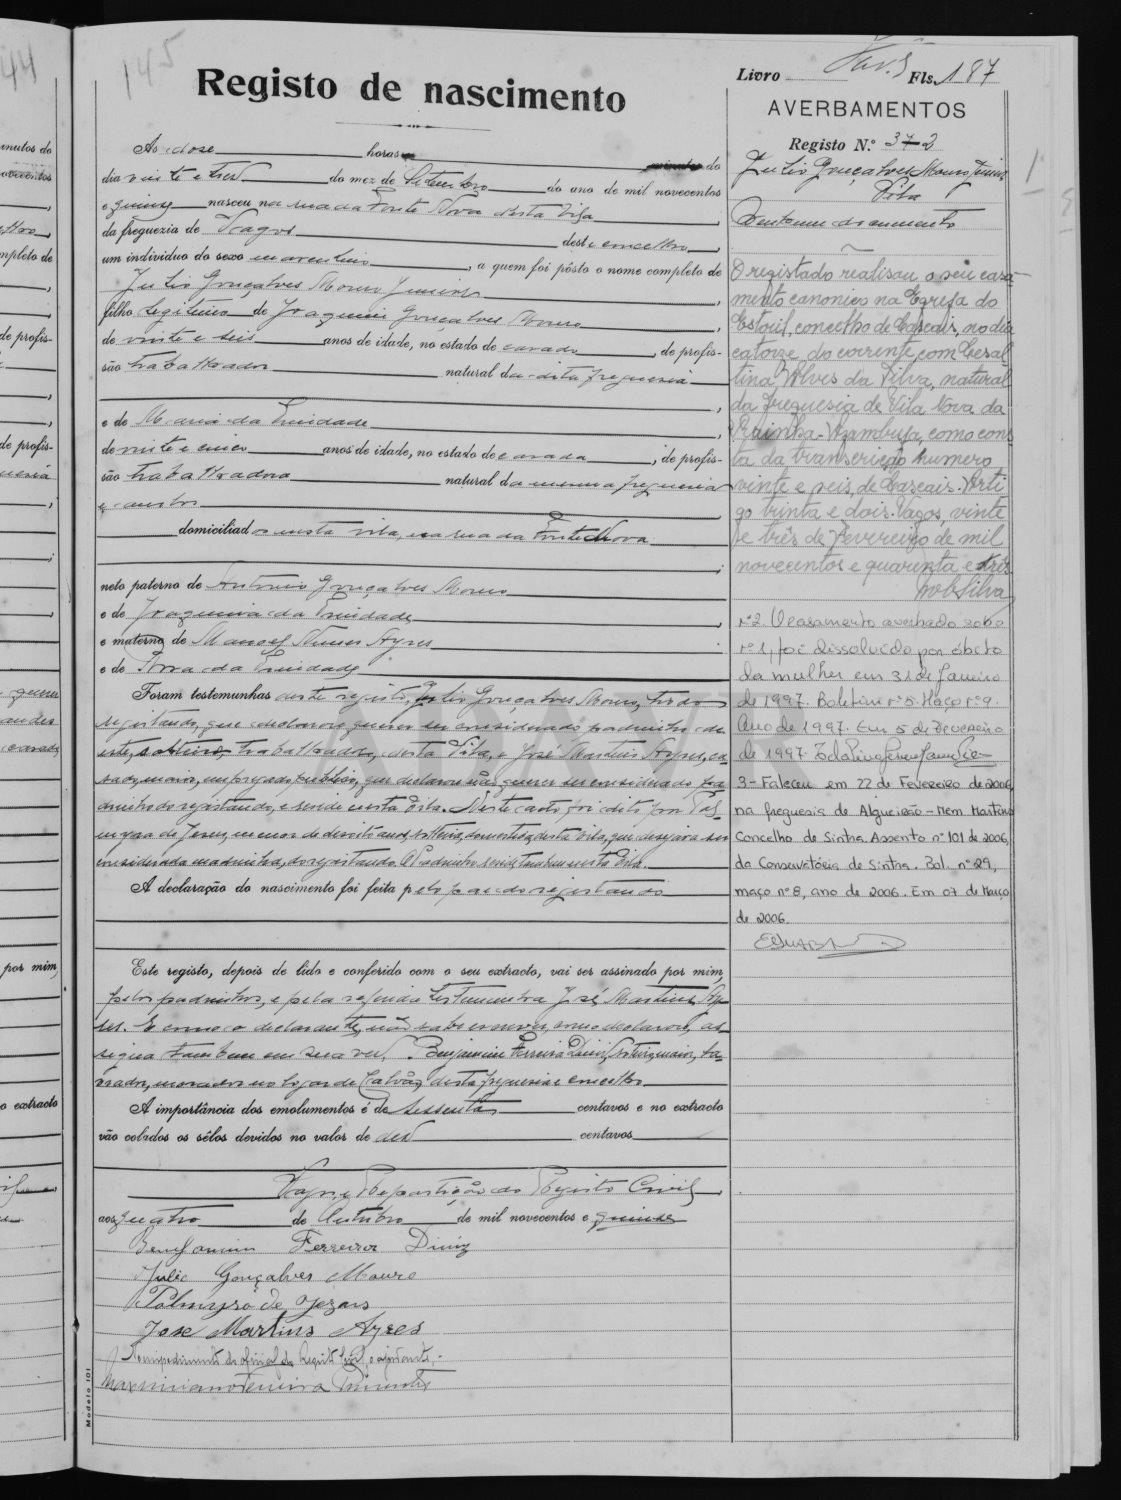 145
Registo de nascimento
Às doze horas do
dia vinte e tres do mez de Setembro do ano de mil novecentos
e quinze nasceu na rua da Fonte Nova desta Vila
da freguezia de Lagos deste concelho,
um individuo do sexo masculino, a quem foi pôsto o nome completo de
Julio Gonçalves Mouro Junior,
filho legitimo de Joaquim Gonçalves Mouro,
de vinte e seis anos de idade, no estado de casado, de profis-
são trabalhador natural da dita freguesia
e de Maria da Trindade,
de vinte e cinco anos de idade, no estado de casada, de profis-
são trabalhadora natural da mesma freguesia
e ambos
domiciliados nesta vila, na rua da Fonte Nova
neto paterno de Antonio Gonçalves Mouro
e de Joaquina da Trindade,
e materno de Manoel Nunes Ayres
e de Anna da Trindade
Foram testemunhas deste registo, Julio Gonçalves Mouro, tio do
registando, que declarou querer ser considerado padrinho de
este, solteiro, trabalhador, desta Vila, e José Martins Ayres, ca-
sado, maior, empregado publico, que declarou não querer ser considerado pa-
drinho do registando, e reside nesta Vila. Neste acto foi dito por Pal-
myra de Jesus, menor de desoito anos, solteira, domestica, desta Vila, que desejava ser
considerada madrinha, do registando. O padrinho reside tambem nesta Vila.
A declaração do nascimento foi feita pelo pae do registando
Este registo, depois de lido e conferido com o seu extracto, vai ser assinado por mim,
pelos padrinhos, e pela referida testemunha José Martins Ay-
res. E como o declarante, não sabe escrever, como declarou, as-
signa tambem em seu vez, Benjamim Ferreira Diniz, solteiro, maior, la-
vrador, morador no logar de Calvão, desta freguesia e concelho
A importância dos emolumentos é de sessenta centavos e no extracto
vão colados os sêlos devidos no valor de dez centavos
Lagos, e Repartição do Registo Civil,
aos quatro de Outubro de mil novecentos e quinze
Benjamim Ferreira Diniz
Julio Gonçalves Mouro
Palmyra de Jezus
Jose Martins Ayres
No impedimento do oficial do Registo Civil, o ajudante,
Modelo 101
Livro Fls. 187
AVERBAMENTOS
Registo N.º 372
Julio Gonçalves Mouro Junior
Vila
O registado realisou o seu casa-
mento canonico na Egreja do
Estoril, concelho de Cascais, no dia
catorze do corrente, com Cesal-
tina Alves da Silva, natural
da freguesia de Vila Nova da
Rainha-Azambuja, como cons
ta da transcrição numero
vinte e seis, de Cascais. Arti
go trinta e dois. Lagos, vinte
e três de Fevereiro de mil
novecentos e quarenta e três
nº 2. O casamento averbado sob o
nº 1, foi dissolvido por óbito
da mulher em 31 de Janeiro
de 1997. Boletim nº 5. Maço nº 9.
Ano de 1997. Em 5 de Fevereiro
de 1997.
3 - Faleceu em 22 de Fevereiro de 2006,
na freguesia de Algueirão - Mem Martins
Concelho de Sintra. Assento nº 101 de 2006,
da Conservatória de Sintra. Bol. nº 29,
maço nº 8, ano de 2006. Em 07 de Março
de 2006.